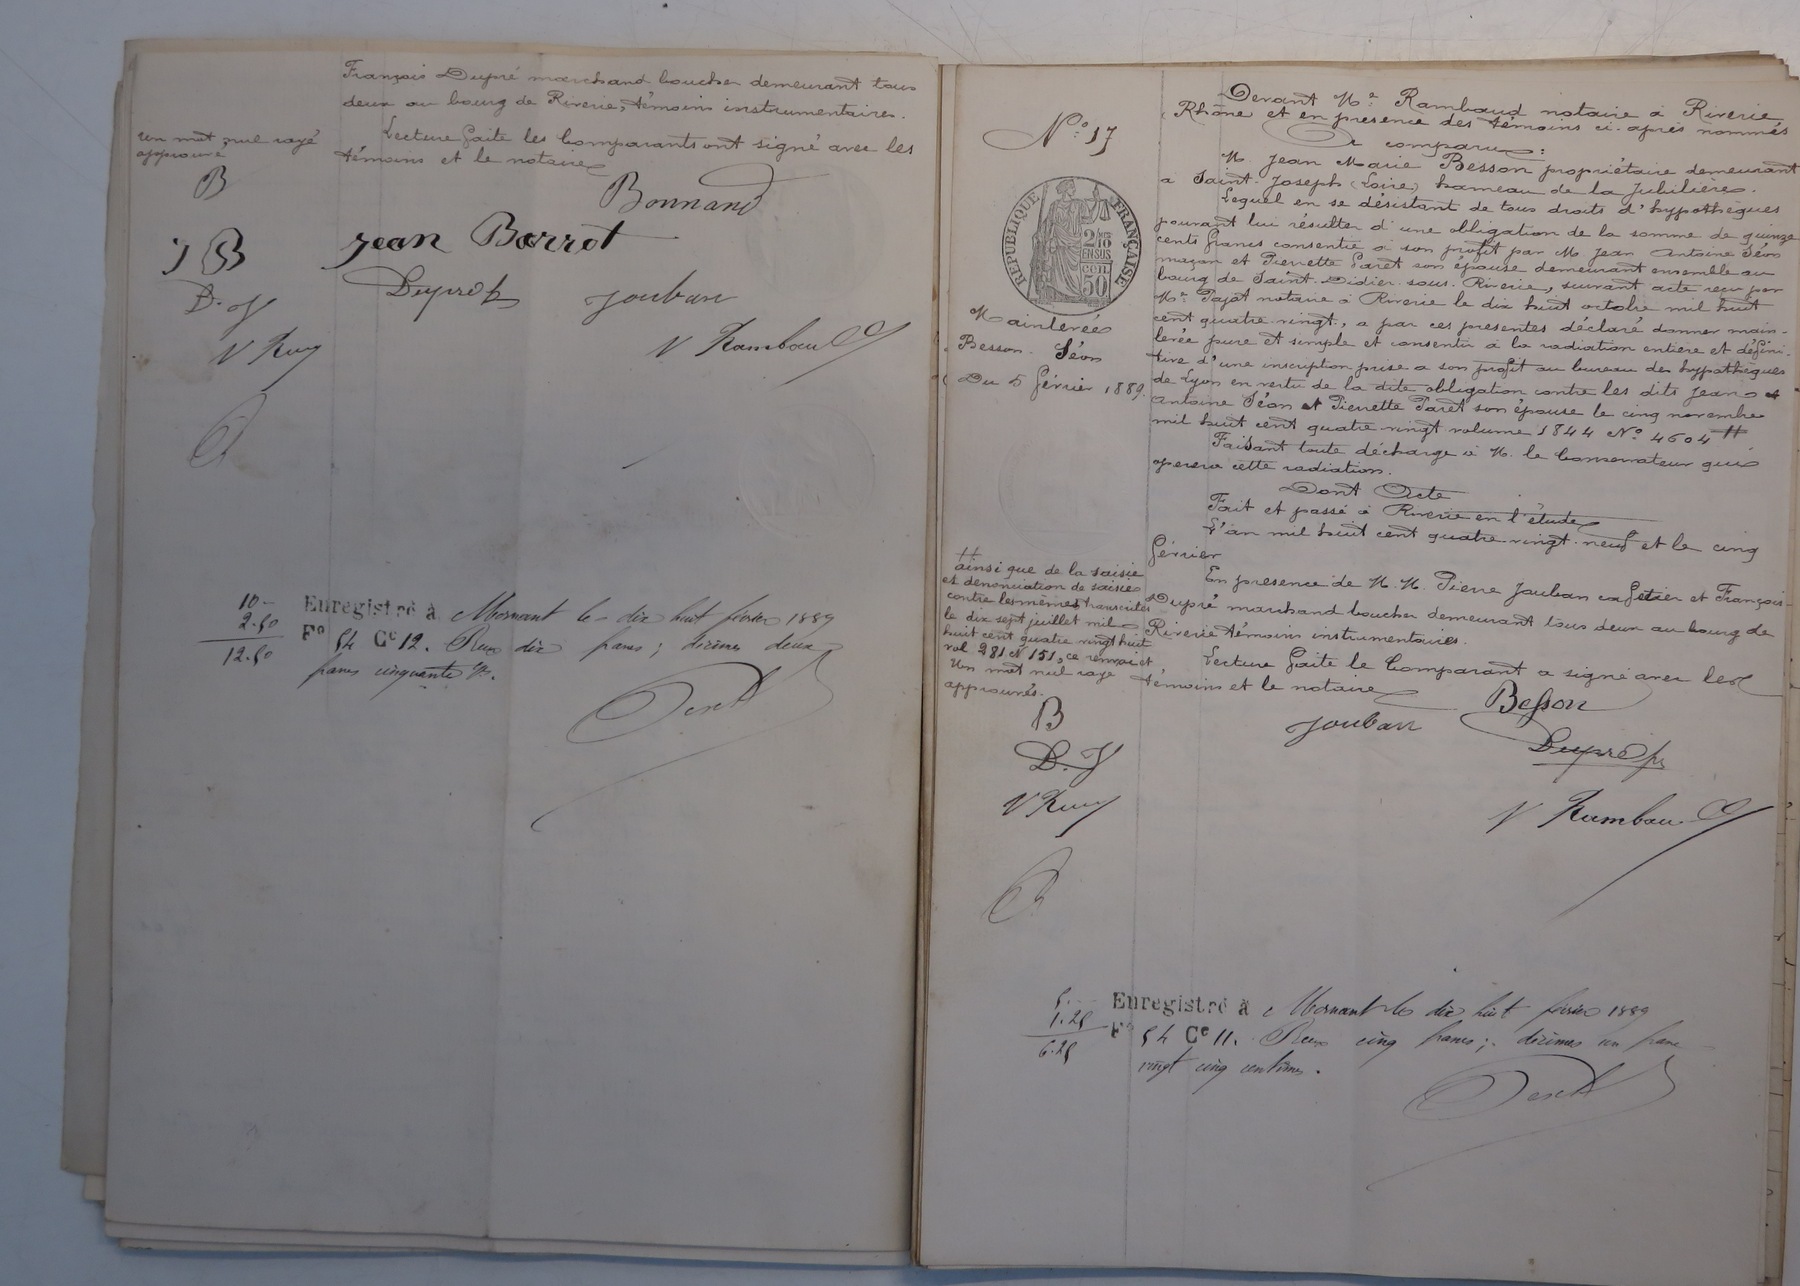 François Dupré marchand boucher demeurant tous
deux au bourg de Riverie, témoins instrumentaires.
Lecture faite les Comparants ont signé avec les
témoins et le notaire
un mot nul rayé
approuvé
B
Bonnand
J B
Jean Barrot
D. J
Dupré
Jouban
V Rambaud
10 -
2.50
12.50
Enregistré à Mornant le dix huit février 1889
F° 54 Ce 12. Reçu dix francs ; décimes deux
francs cinquante
N° 17
RÉPUBLIQUE FRANÇAISE
2/10
EN SUS
50
Mainlevée
Besson - Séon
Du 5 février 1889.
Devant Me Rambaud notaire à Riverie
(Rhône et en présence des témoins ci-après nommés
A comparu :
M. Jean Marie Besson propriétaire demeurant
a Saint-Joseph (Loire) hameau de la Jubilière.
Lequel en se désistant de tous droits d'hypothèques
pouvant lui résulter d'une obligation de la somme de quinze
cents francs consentie à son profit par M. Jean Antoine Séon
maçon et Pierrette Paret son épouse demeurant ensemble au
bourg de Saint-Didier-sous-Riverie, suivant acte reçu par
Me Pajot notaire à Riverie le dix huit octobre mil huit
cent quatre vingt, a par ces présentes déclaré donner main-
levée pure et simple et consentir à la radiation entière et défini-
tive d'une inscription prise a son profit au bureau des hypothèques
de Lyon en vertu de la dite obligation contre les dits Jean
Antoine Séon et Pierrette Paret son épouse le cinq novembre
mil huit cent quatre vingt volume 1844 N° 4604 #
Faisant toute décharge à M. le Conservateur qui
operera cette radiation.
Dont Acte
Fait et passé à Riverie en l'étude
L'an mil huit cent quatre vingt-neuf et le cinq
février
En présence de M. M. Pierre Jouban cafetier et François
Dupré marchand boucher demeurant tous deux au bourg de
Riverie témoins instrumentaires.
Lecture faite le Comparant a signé avec les
témoins et le notaire
# ainsi que de la saisie
et dénonciation de saisie
contre les mêmes transcrites
le dix sept juillet mil
huit cent quatre vingt huit
vol. 281 N° 151, ce renvoi et
Un mot nul rayé
approuvés.
B
Besson
Jouban
D. J
Dupré
V Rambaud
5. -
1.25
6.25
Enregistré à Mornant le dix huit février 1889
F° 54 Ce 11. Reçu cinq francs ; décimes un franc
vingt cinq centimes.